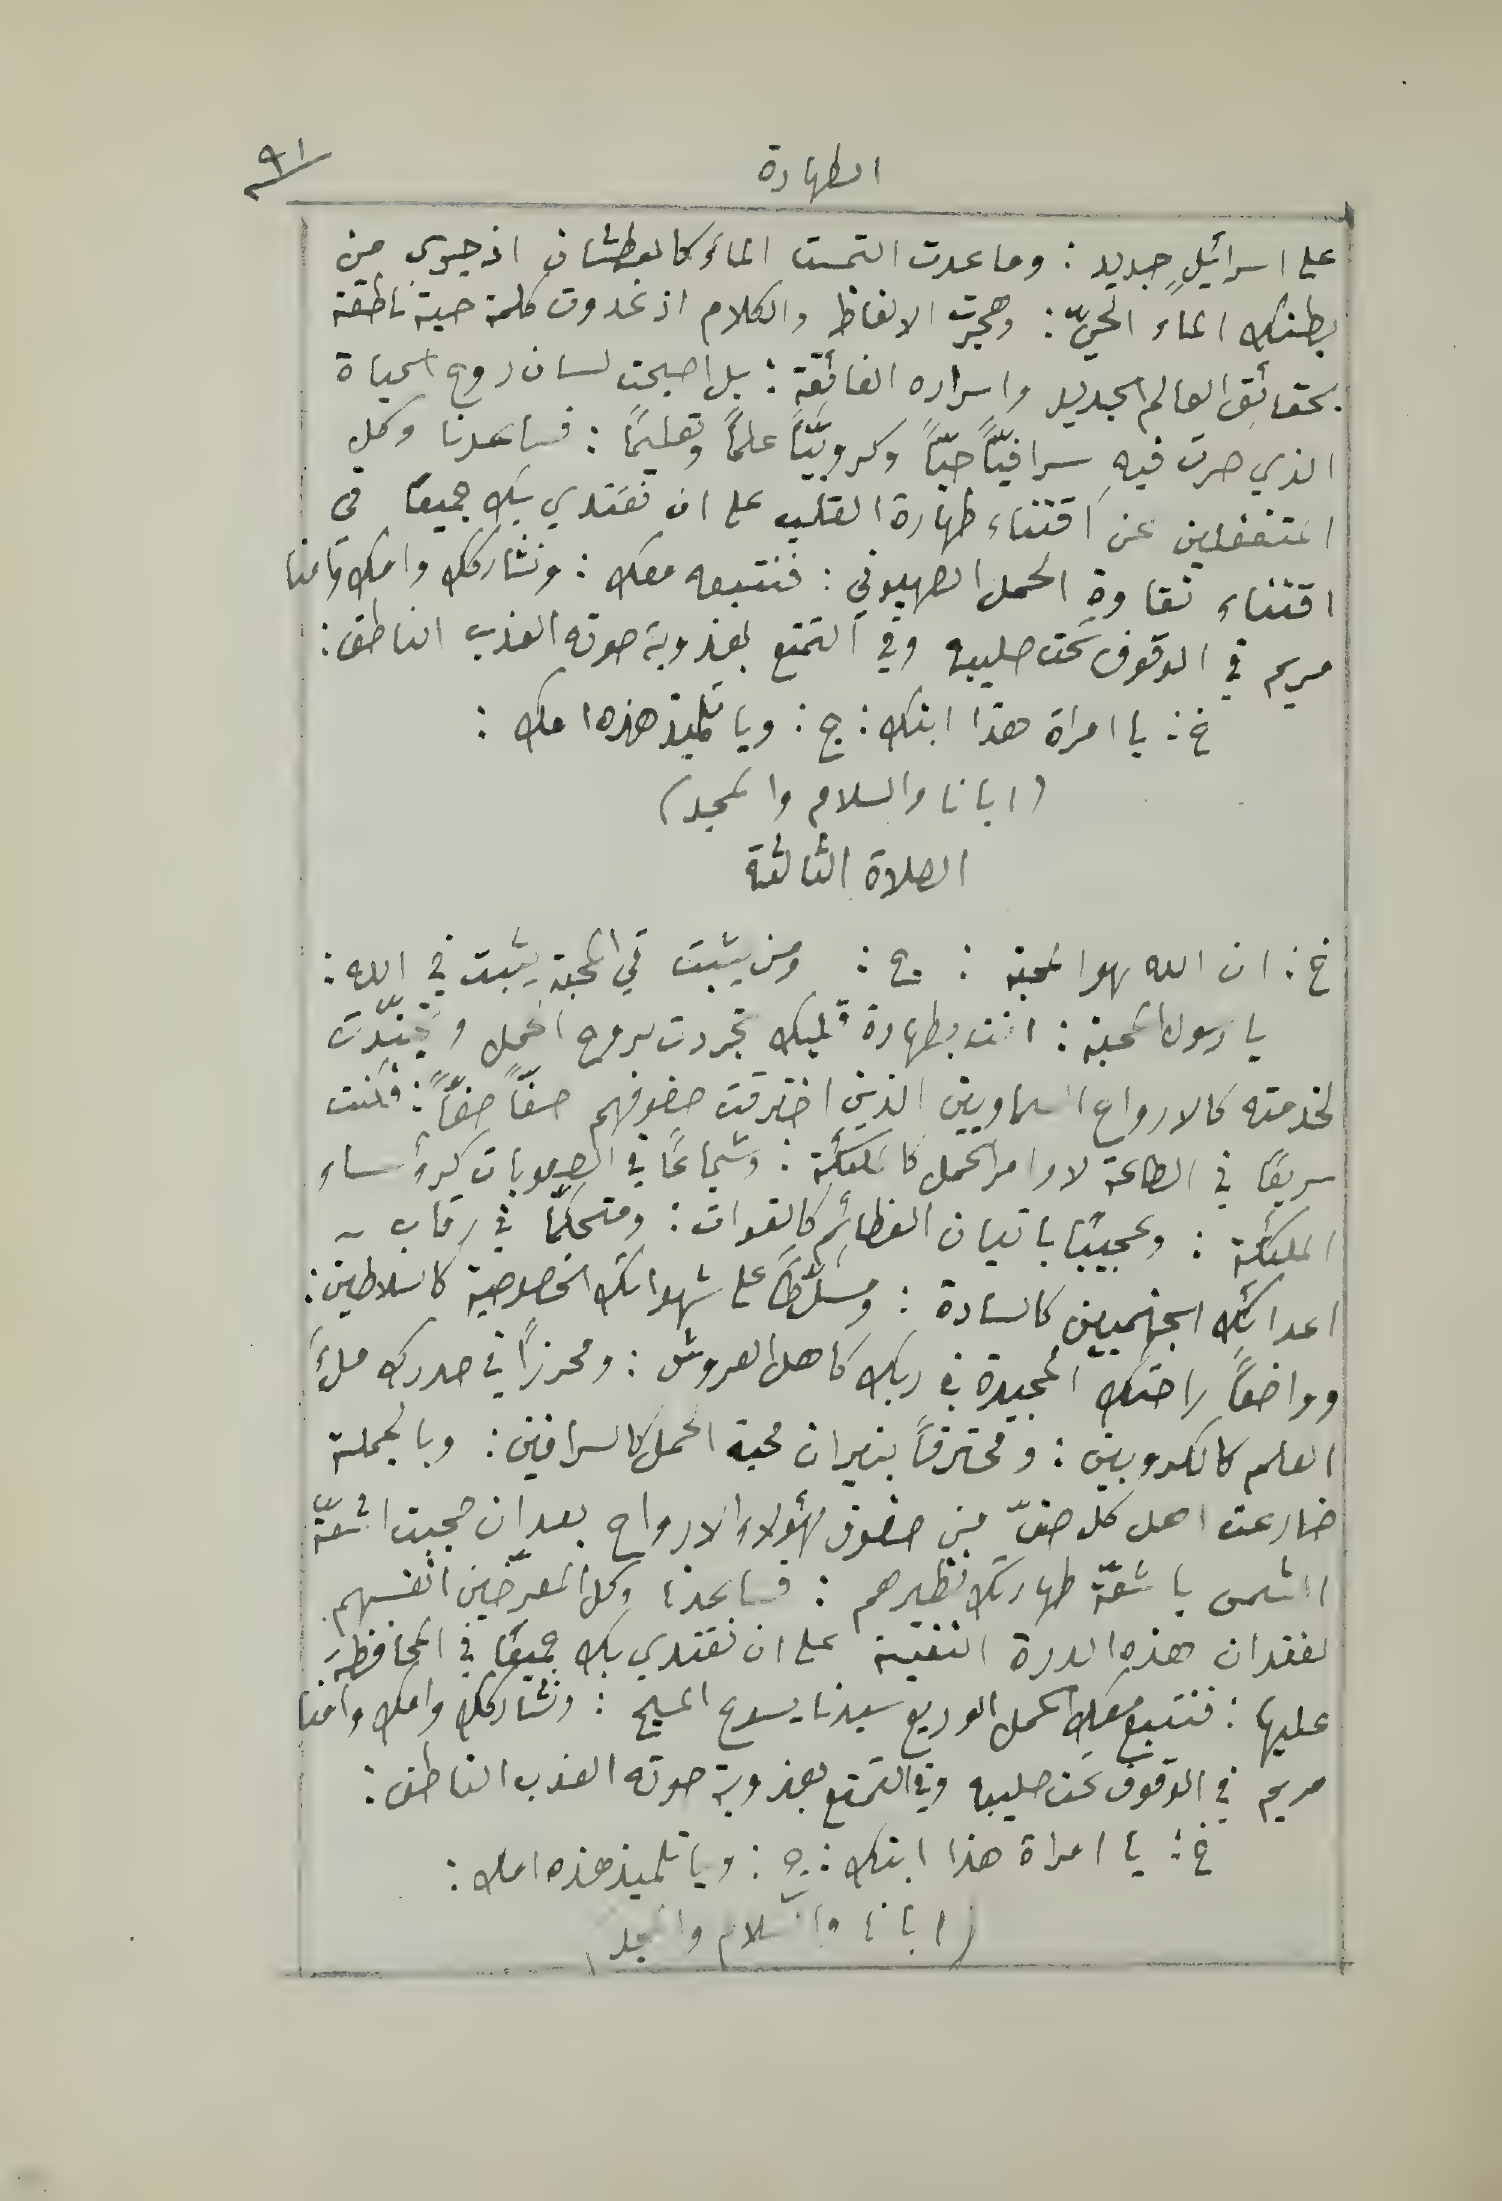 الطهارة
٩١
على اسرائيلٍ جديد : وما عدت التمست الماءَ كالعطشان اذ جرى من
بطنك الماءُ الحيّ : وهجرت الالفاظ والكلام اذ غدوت كلمة حية ناطقة
بحقائق العالم الجديد واسراره الفائقة : بل اصبحت لسان روح الحياة
الذي صرت فيهِ سرافيًّا حبًّا وكروبيًّا علمًا وتعليمًا : فساعدنا وكل
المتغفلين عن اقتناء طهارة القلب على ان نقتدي بك جميعًا في
اقتناء نقاوة الحمل الصهيوني : فنتبعه معك : ونشاركك وامك وامنا
مريم في الوقوف تحت صليبه وفي التمتع بعذوبة صوته العذب الناطق :
خ : يا امراة هذا ابنك : ج : ويا تلميذ هذه امك :
(ابانا والسلام والمجد)
الصلاة الثالثة
خ : ان الله هو المحبة : ج : ومن يثبت في المحبة يثبت في الله :
يا رسول المحبة : انت بطهارة قلبك تجردت بروح الحمل وتجنّدت
لخدمته كالارواح السماويين الذين اخترقت صفوفهم صفًّا صفًّا : فكنت
سريعًا في الطاعة لاوامر الحمل كالملائكة : وشجاعًا في الصعوبات كرؤساء
الملئكة : وعجيبًا باتيان العظائم كالقوات : ومتحكمًا في رقاب
اعدائك الجهنميين كالسادة : ومسلّطًا على شهواتك الخصوصية كالسلاطين :
وواضعًا راحتك المجيدة في ربك كاهل العروش : ومحرزًا في صدرك ملءَ
العلم كالكروبين : ومحترقًا بنيران محبة الحمل كالسرافين : وبالجملة
ضارعت اهل كل صفّ من صفوف هؤلاء الارواح بعد ان حجبت اشعّة
الشمس باشعّة طهارتك نظيرهم : فساعدنا وكل المعرّضين انفسهم
لفقدان هذه الدرة النقية على ان نقتدي بك جميعًا في المحافظة
عليها : فنتبع معك الحمل الوديع سيدنا يسوع المسيح : ونشاركك وامك وامنا
مريم في الوقوف تحت صليبه وفي التمتع بعذوبة صوته العذب الناطق :
خ : يا امراة هذا ابنك : ج : ويا تلميذ هذه امك :
(ابانا والسلام والمجد)